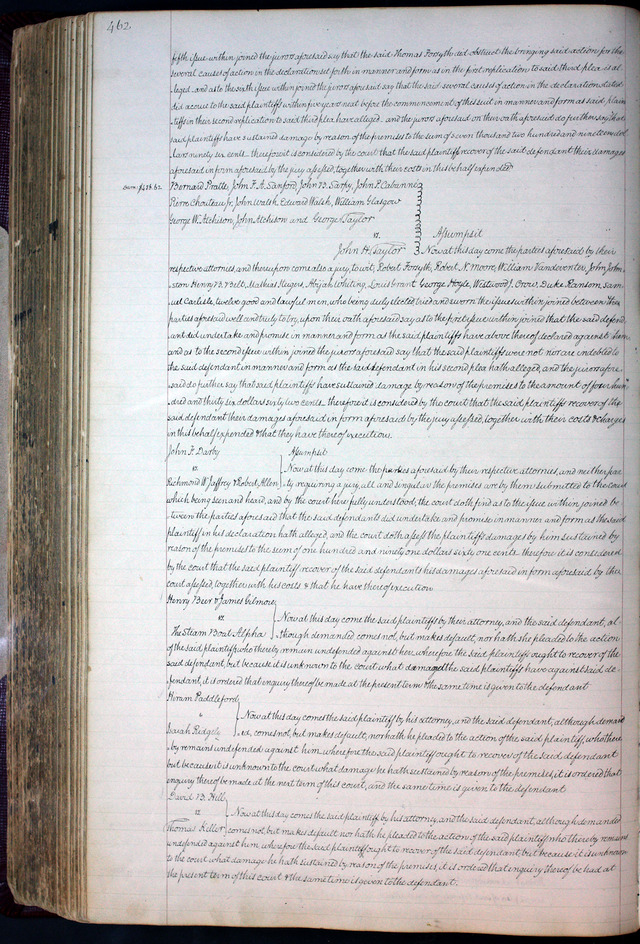 462
fifth issue within joined the jurors aforesaid say that the said Thomas Forsyth did obstruct the bringing said action for the
several causes of action in the declaration set forth in manner and form as in the first replication to said third plea is al-
ledged, and as to the sixth issue within joined the jurors aforesaid say that the said several causes of action in the declaration stated
did accrue to the said plaintiffs within five years next before the commencement of this suit in manner and form as said plain-
tiffs in their second replication to said third plea have alleged. and the jurors aforesaid on their oath aforesaid do further say that
said plaintiffs have sustained damage by reason of the premises to the sum of seven thousand two hundred and nineteen dol-
lars ninety six cents. therefore it is considered by the court that the said plaintiffs recover of the said defendant their damages
aforesaid in form aforesaid by the jury assessed, together with their costs in this behalf expended
Bernard Pratte, John F. A. Sanford, John B. Sarpy, John P. Cabanne
Pierre Chouteau Jr, John Walsh, Edward Walsh, William Glasgow
George W. Atchison, John Atchison and George Taylor
vs. Assumpsit
John H. Taylor Now at this day come the parties aforesaid by their
respective attornies, and thereupon comes also a jury, to wit, Robert Forsyth, Robert N. Moore, William Vandeventer, John John-
ston, Henry B. Belt, Mathias Steigers, Abijah Whiting, Louis Grant, George Hoyle, Westwood J. Crow, Duke Ransom, Sam-
uel Carlisle, twelve good and lawful men, who being duly elected tried and sworn the issues within joined between the
parties aforesaid well and truly to try, upon their oath aforesaid say as to the first issue within joined that the said defend-
ant did undertake and promise in manner and form as the said plaintiffs have above thereof declared against him
and as to the second issue within joined the jurors aforesaid say that the said plaintiffs were not nor are indebted to
the said defendant in manner and form as the said defendant in his second plea hath alleged, and the jurors afore-
said do further say that said plaintiffs have sustained damage by reason of the premises to the amount of four hun-
dred and thirty six dollars sixty two cents. therefore it is considered by the court that the said plaintiffs recover of the
said defendant their damages aforesaid in form aforesaid by the jury assessed, together with their costs & charges
in this behalf expended & that they have thereof execution.
John F. Darby Assumpsit
vs. Now at this day come the parties aforesaid by their respective attornies, and neither par-
Richmond W. Jaffrey & Robert Allen ty requiring a jury, all and singular the premises are by them submitted to the court
which being seen and heard, and by the court here fully understood, the court doth find as to the issue within joined be-
tween the parties aforesaid that the said defendants did undertake and promise in manner and form as the said
plaintiff in his declaration hath alleged, and the court doth assess the plaintiffs damages by him sustained by
reason of the premises to the sum of one hundred and ninety one dollars sixty one cents. therefore it is considered
by the court that the said plaintiff recover of the said defendants his damages aforesaid in form aforesaid by the
court assessed, together with his costs & that he have thereof execution
Henry Beer & James Gilmore
vs. Now at this day come the said plaintiffs by their attorney, and the said defendant, al-
The Steam Boat Alpha though demanded comes not, but makes default, nor hath she pleaded to the action
of the said plaintiffs, who thereby remain undefended against her, wherefore the said plaintiffs ought to recover of the
said defendant, but because it is unknown to the court what damages the said plaintiffs have against said de-
fendant, it is ordered that enquiry thereof be made at the present term & the same time is given to the defendant
Hiram Paddleford
vs Now at this day comes the said plaintiff by his attorney, and the said defendant, although demand
Isarah Ridgely ed, comes not, but makes default, nor hath he pleaded to the action of the said plaintiff, who there-
by remains undefended against him, wherefore the said plaintiff ought to recover of the said defendant
but because it is unknown to the court what damage he hath sustained by reason of the premises, it is ordered that
enquiry thereof be made at the next term of this court, and the same time is given to the defendant
David B. Hill
vs. Now at this day comes the said plaintiff by his attorney, and the said defendant, although demanded
Thomas Keller comes not, but makes default nor hath he pleaded to the action of the said plaintiff who thereby remains
undefended against him, wherefore the said plaintiff ought to recover of the said defendant, but because it is unknown
to the court what damage he hath sustained by reason of the premises, it is ordered that enquiry thereof be had at
the present term of this court & the same time is given to the defendant.